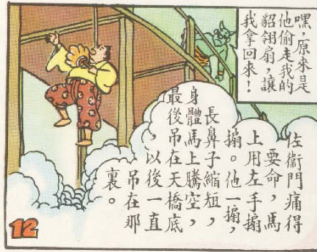 嘿,原來是
他偷走我的
貂翎扇,讓
我拿回來!
佐衞門痛得
要命,馬
上用左手搧
搧。他一搧,
長鼻子縮短,
身體馬上騰空,
最後吊在天橋底
,以後一直
吊在那
裏。
12